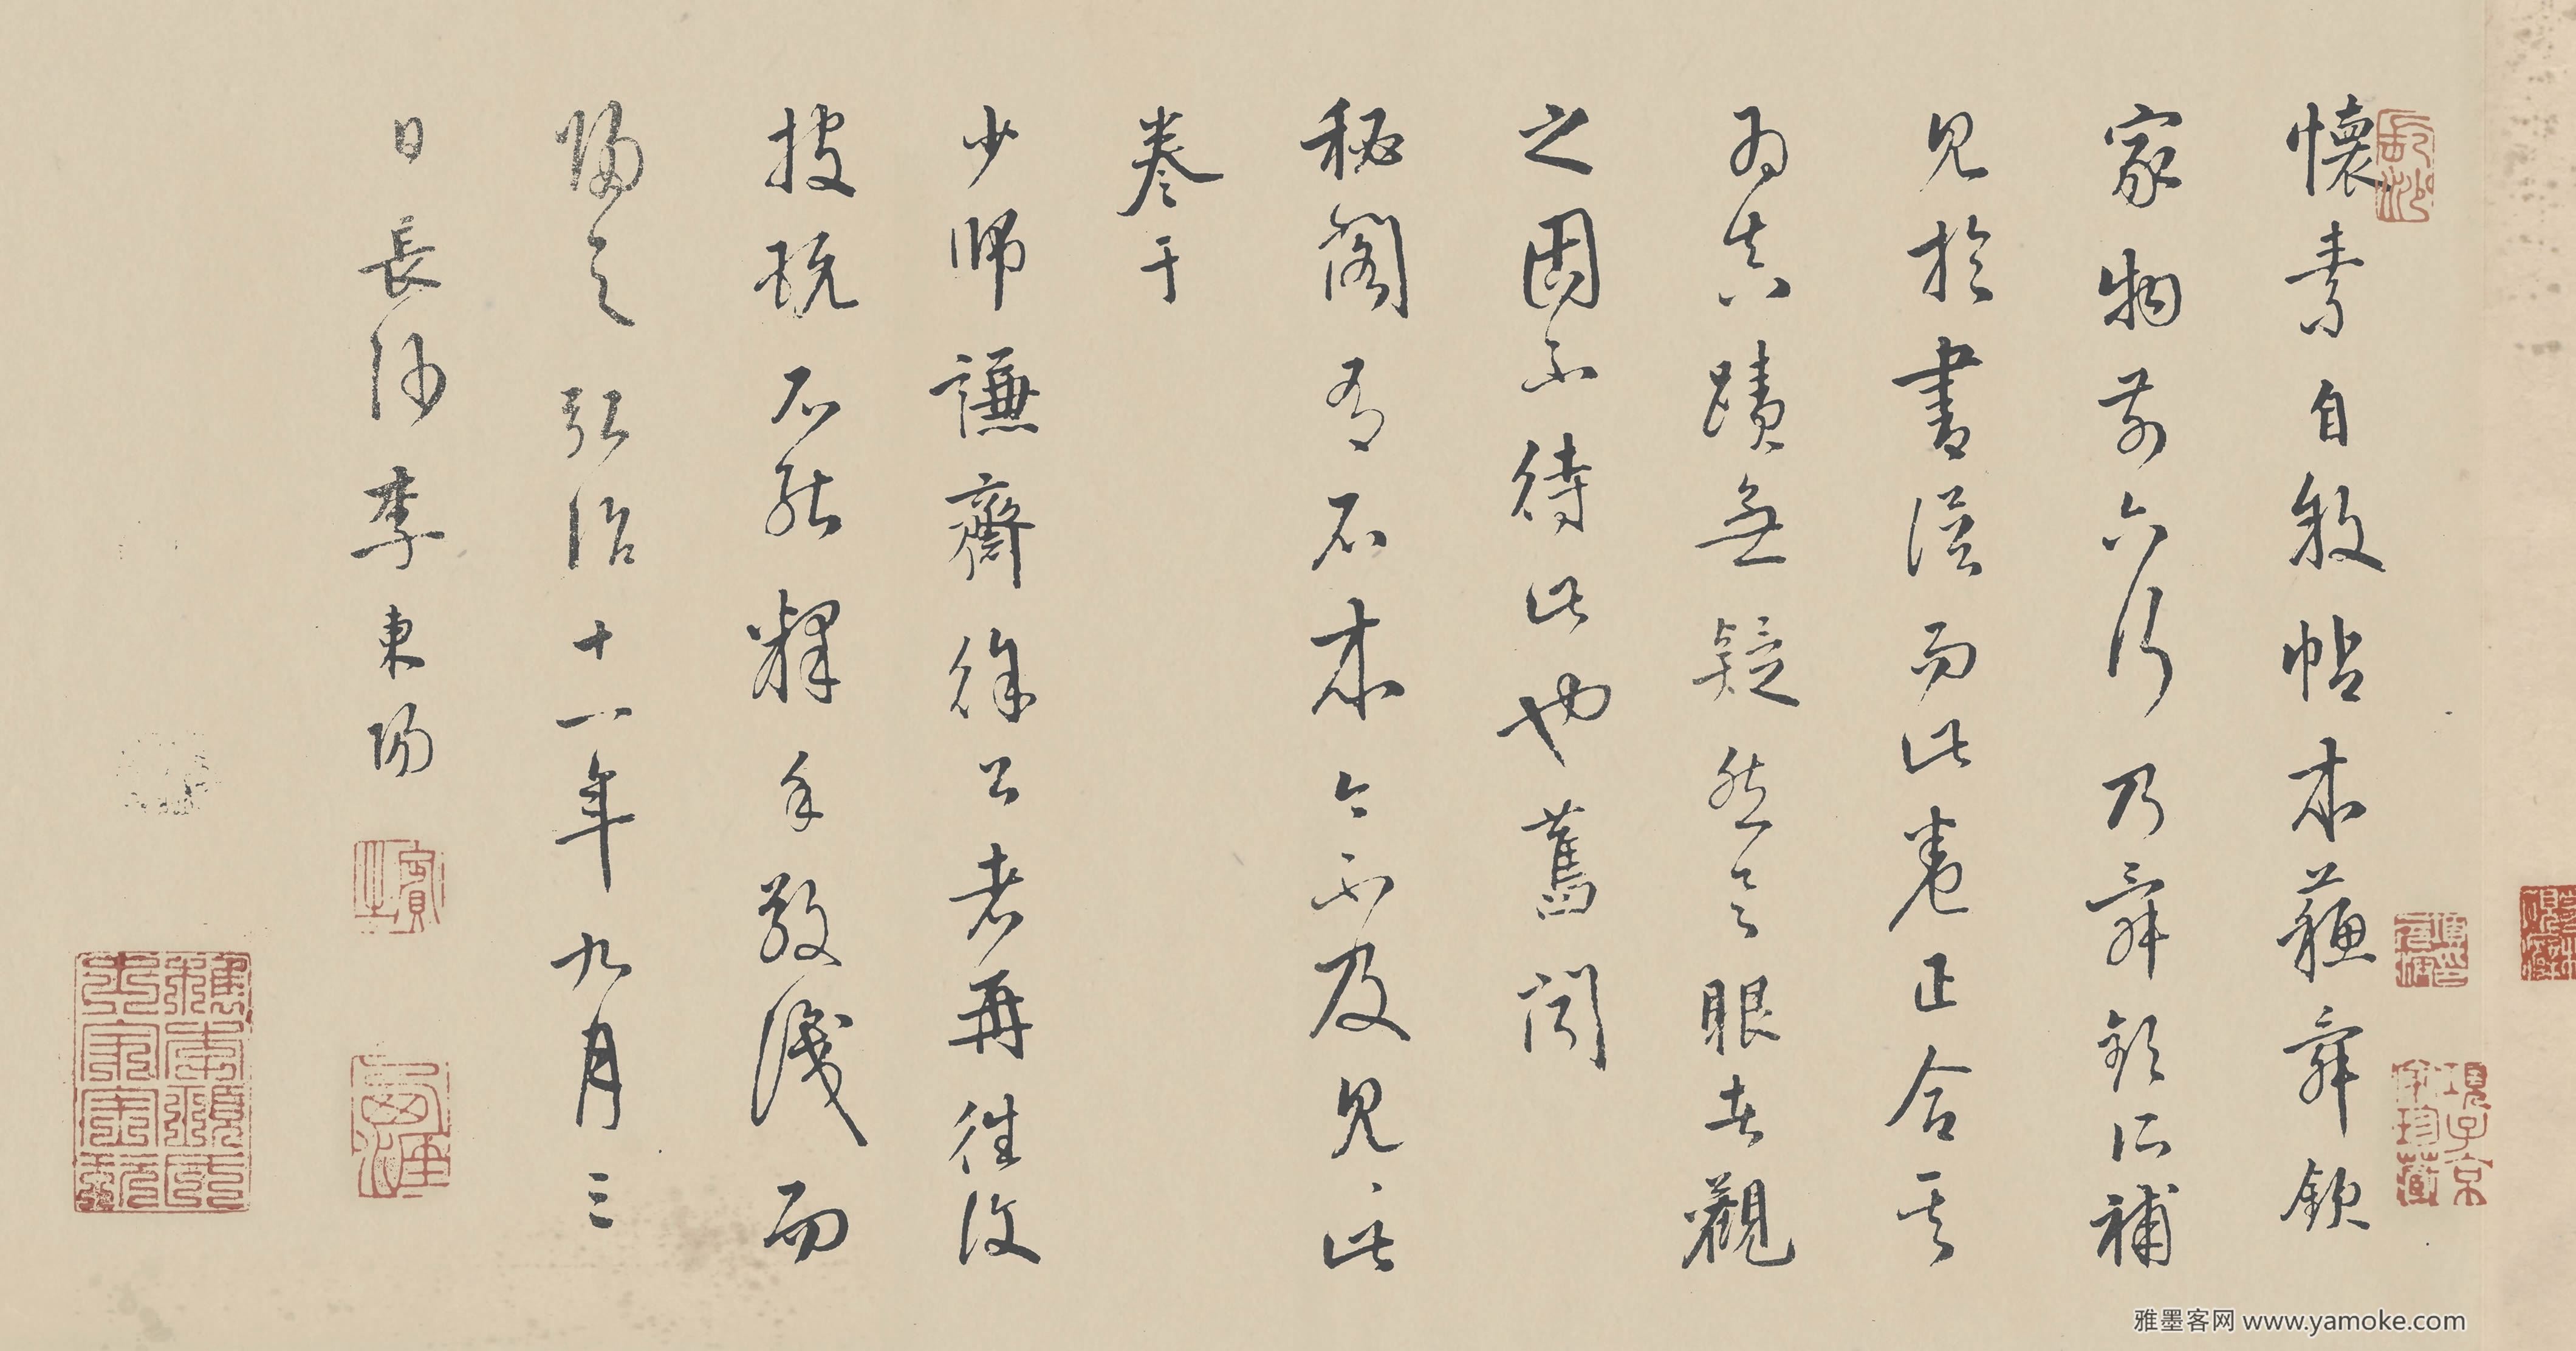 懷素自敘帖本蘇舜欽
家物前六行乃舜欽所補
見於書譜而此卷正合其
為真蹟無疑然具眼者觀
之固不待此也舊聞
秘閣有石本今不及見此
卷于
少師謙齋徐公者再往復
披玩不能釋手敬識而
歸之弘治十一年九月三
日長沙李東陽
賓之
項子京家珍藏
雅墨客网 www.yamoke.com